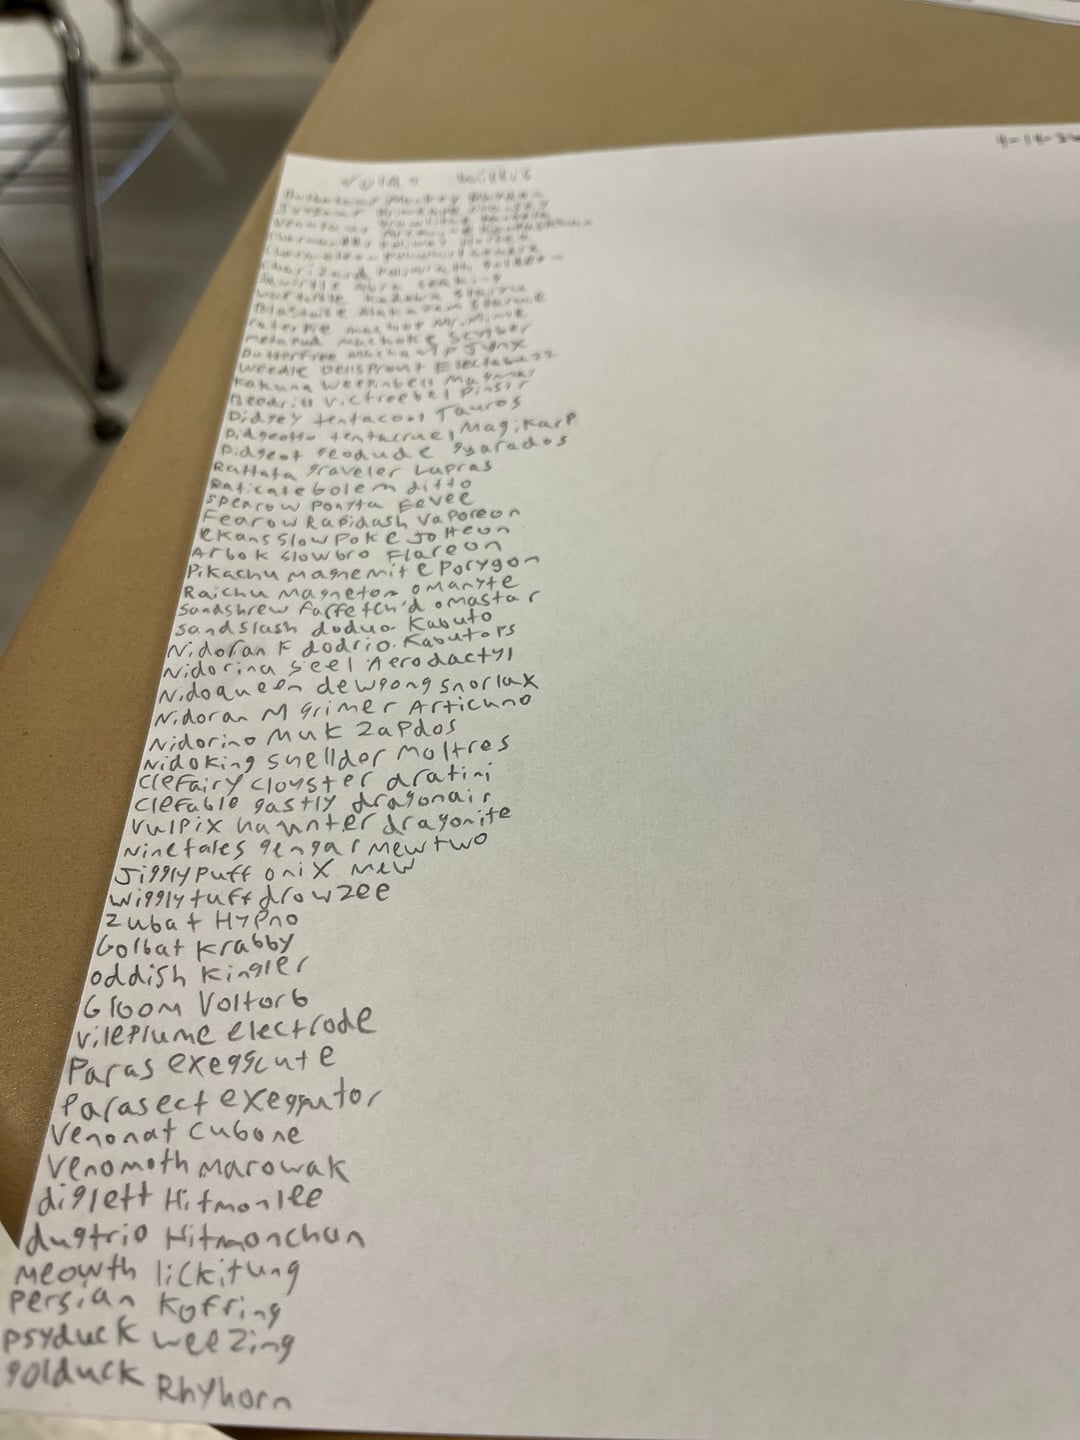 Bulbasaur Mankey Rhydon
Growlithe
Arcanine Kangaskhan
Poliwag Horsea
Poliwhirl Seadra
Charizard Poliwrath goldeen
Squirtle Abra seaking
wartortle Kadabra staryu
Blastoise Alakazam starmie
caterpie machop Mr. Mime
metapod machoke scyther
Butterfree machamp Jynx
weedle Bellsprout Electabuzz
Kakuna weepinbell Magmar
Beedrill victreebel Pinsir
Pidgey tentacool Tauros
Pidgeotto tentacruel Magikarp
Pidgeot geodude gyarados
Rattata graveler Lapras
Raticate Golem ditto
spearow Ponyta Eevee
Fearow Rapidash Vaporeon
ekans Slowpoke Jolteon
Arbok Slowbro Flareon
Pikachu magnemite Porygon
Raichu Magneton omanyte
Sandshrew farfetch'd omastar
sandslash doduo Kabuto
Nidoran F dodrio Kabutops
Nidorina seel Aerodactyl
Nidoqueen dewgong snorlax
Nidoran M grimer Articuno
Nidorino Muk Zapdos
Nidoking shellder moltres
Clefairy cloyster dratini
Clefable gastly dragonair
Vulpix haunter dragonite
Ninetales gengar mewtwo
Jigglypuff onix mew
wigglytuff drowzee
Zubat Hypno
Golbat Krabby
oddish kingler
Gloom Voltorb
vileplume electrode
Paras exeggcute
Parasect exeggutor
Venonat cubone
Venomoth marowak
diglett Hitmonlee
dugtrio Hitmonchan
meowth lickitung
persian Koffing
psyduck weezing
golduck Rhyhorn